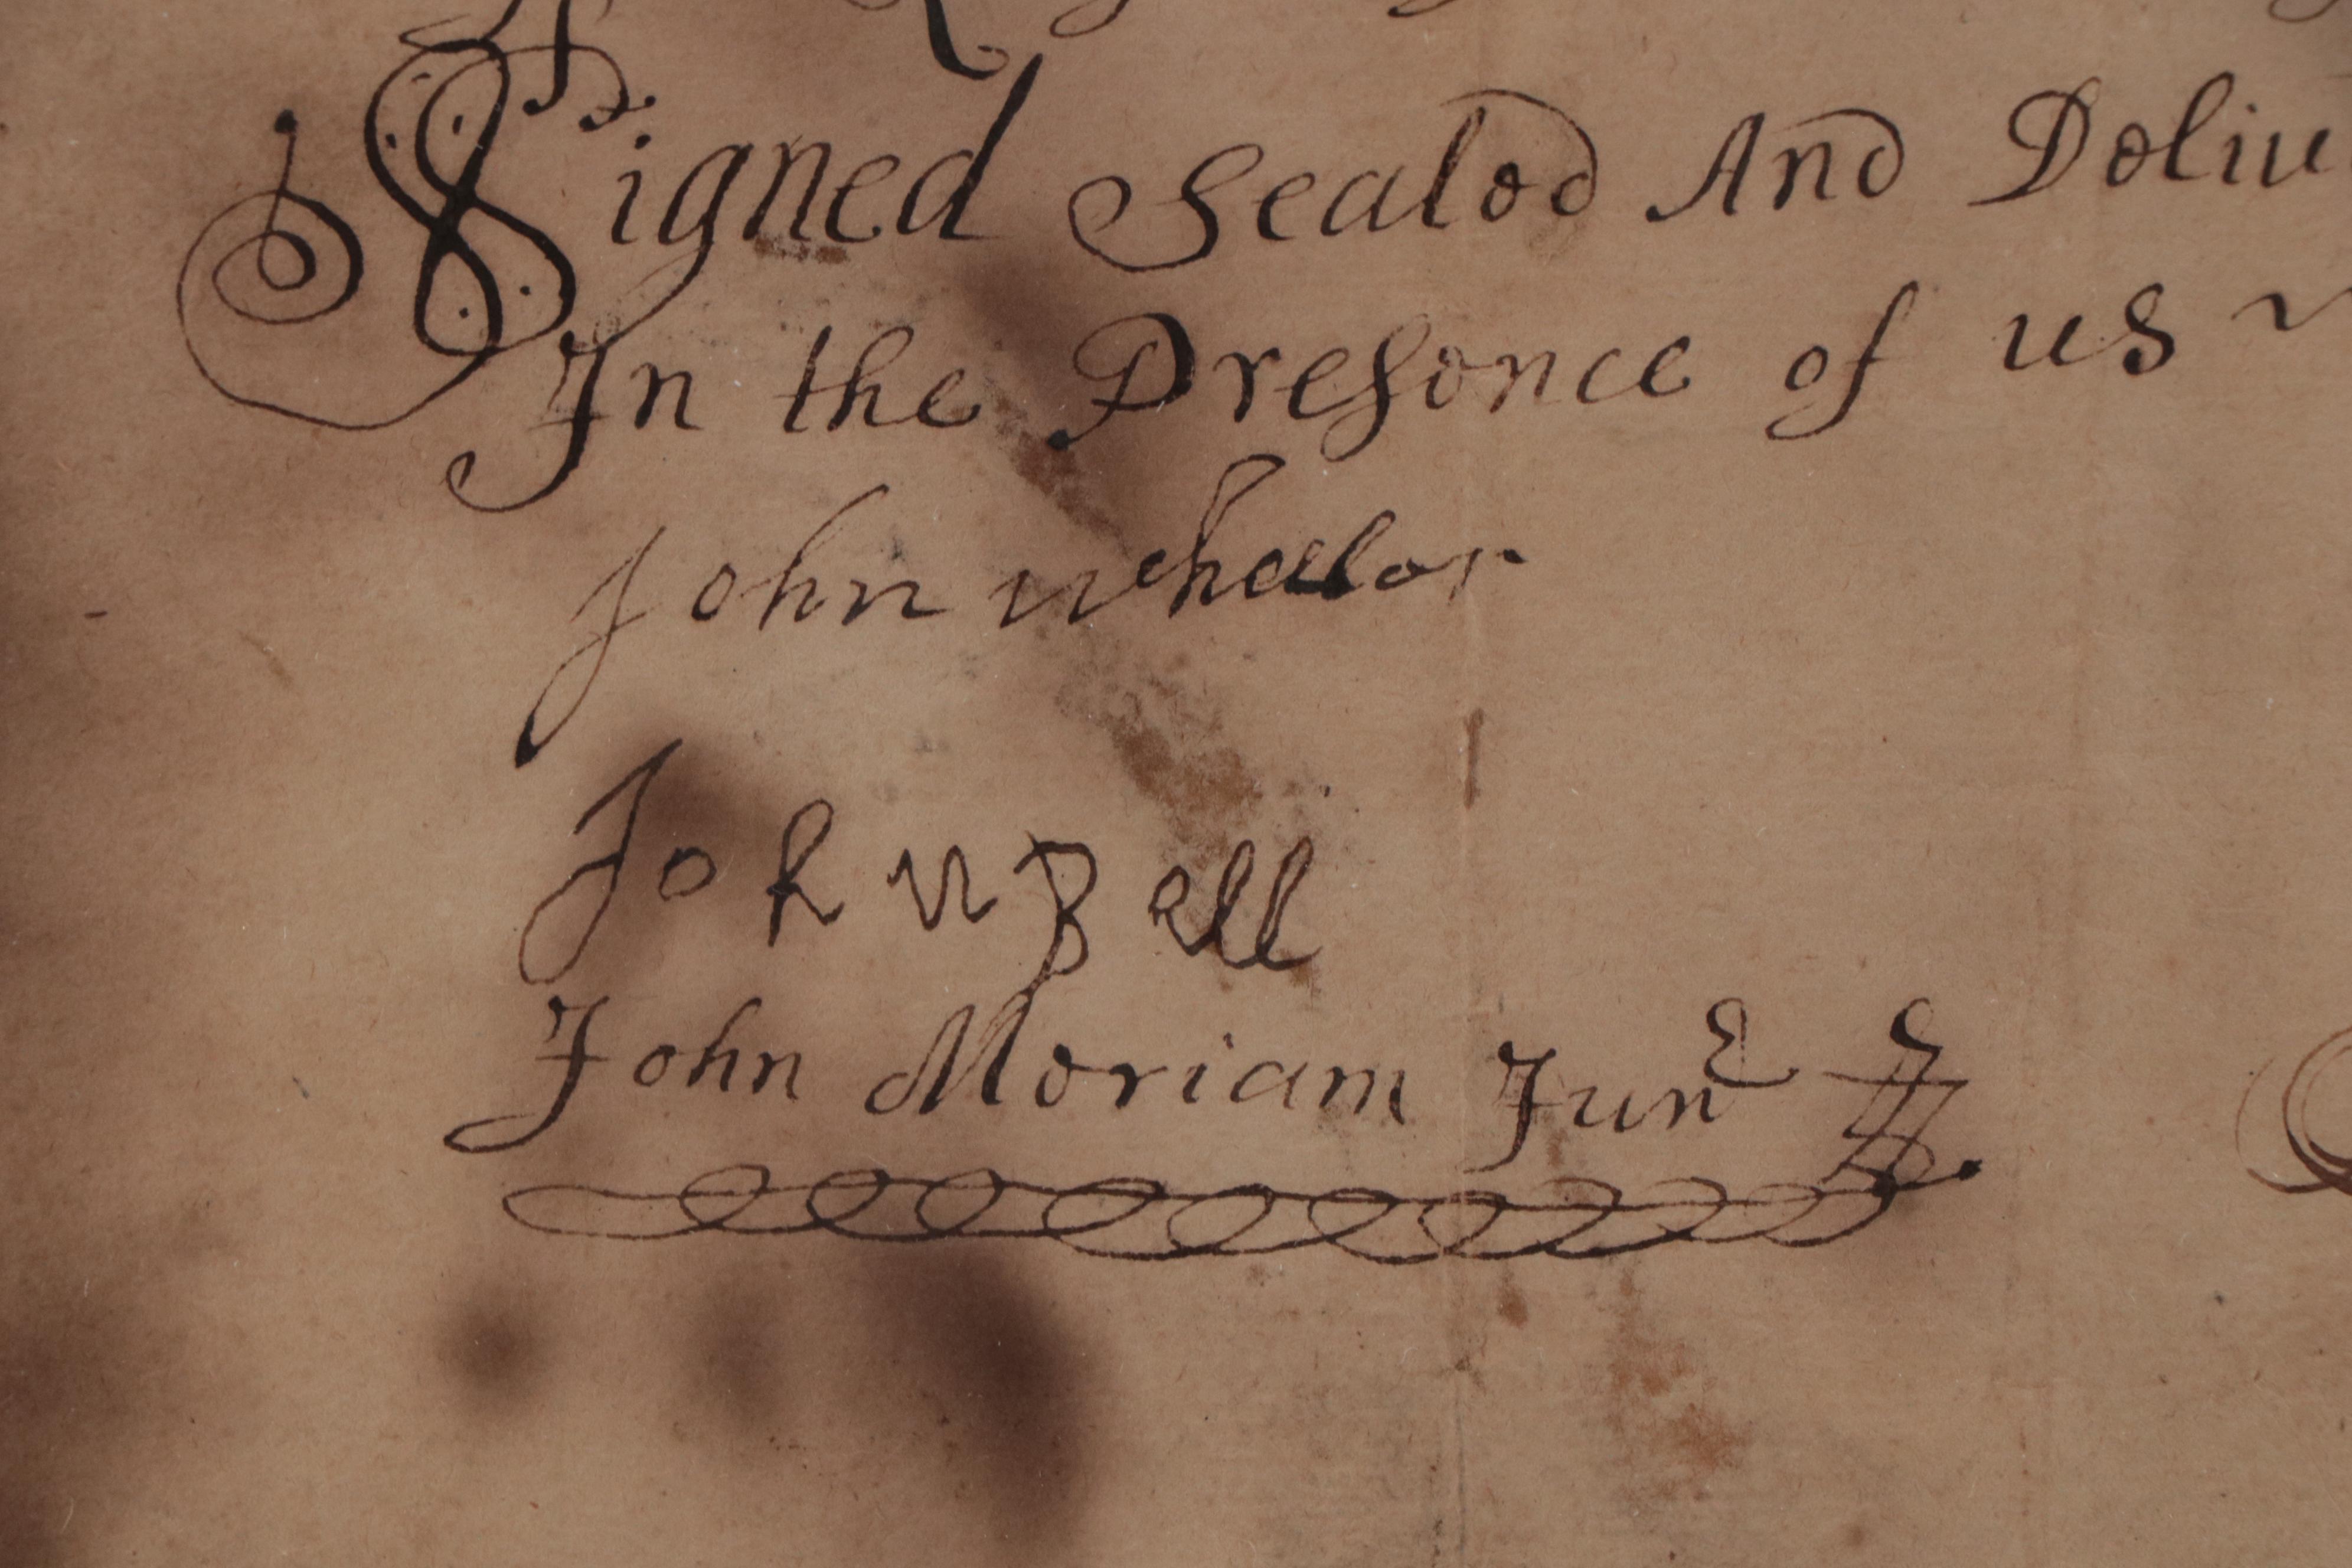 Signed Sealed And Deliu
In the Presence of us ~
John wheeler
John Bell
John Meriam Junr